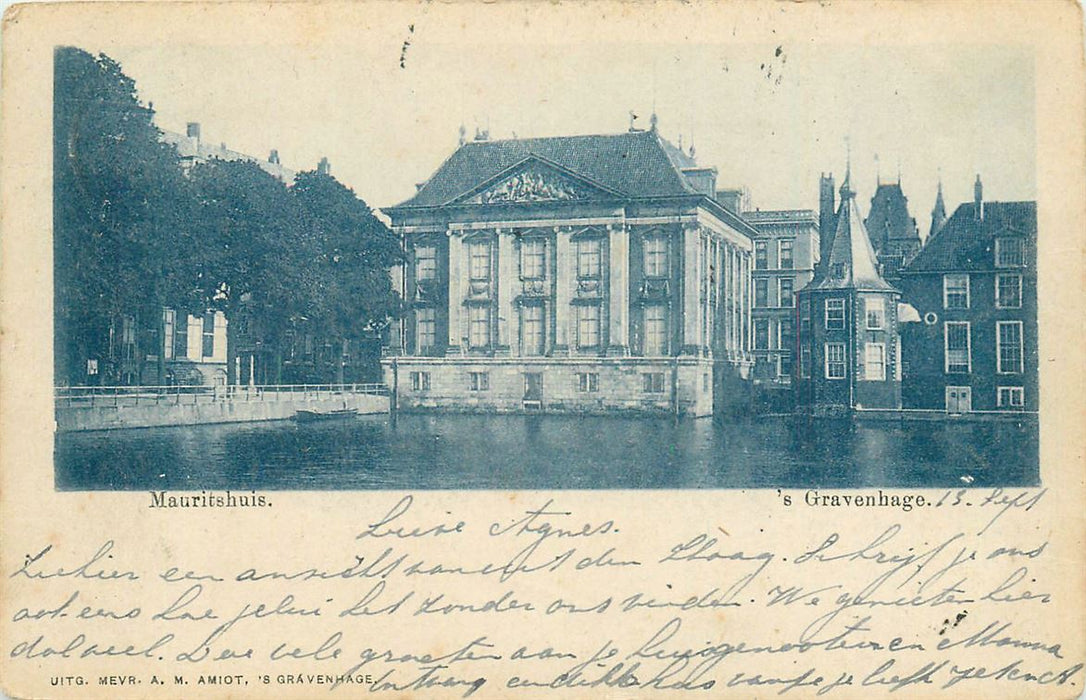 Mauritshuis.
's Gravenhage. 13. Sept
Lieve Agnes.
Ziehier een ansicht van uit den Haag. Schrijf je ons
ook eens hoe jelui het zonder ons vinden. We genieten hier
dolveel. Doe vele groeten aan je huisgenooten en Mama
ontvang een dikke van je liefh.
UITG. MEVR. A. M. AMIOT, 'S GRAVENHAGE.